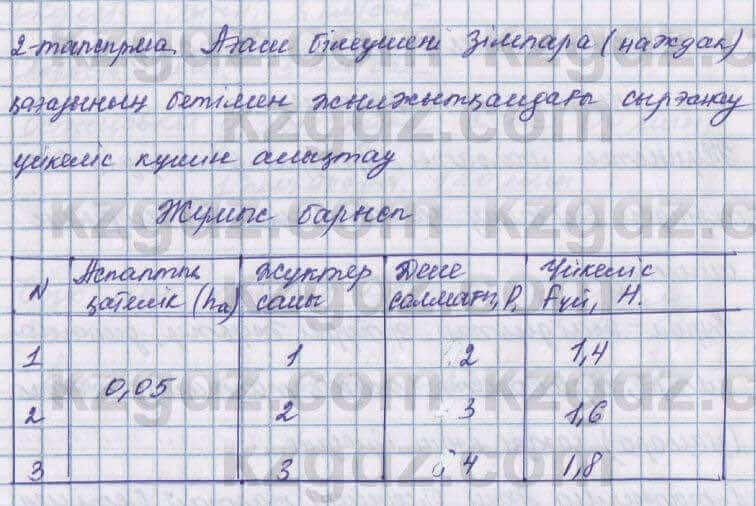 2-тапсырма. Ағаш білеушені зімпара (наждак)
қағазының бетімен жылжытқандағы сырғанау
үйкеліс күшін анықтау
Жұмыс барысы
N Аспаптық қателік (ha) Жүктер саны Дене салмағы, P. Үйкеліс Fүй, Н.
1 0,05 1 2 1,4
2 2 3 1,6
3 3 4 1,8
kzgdz.com